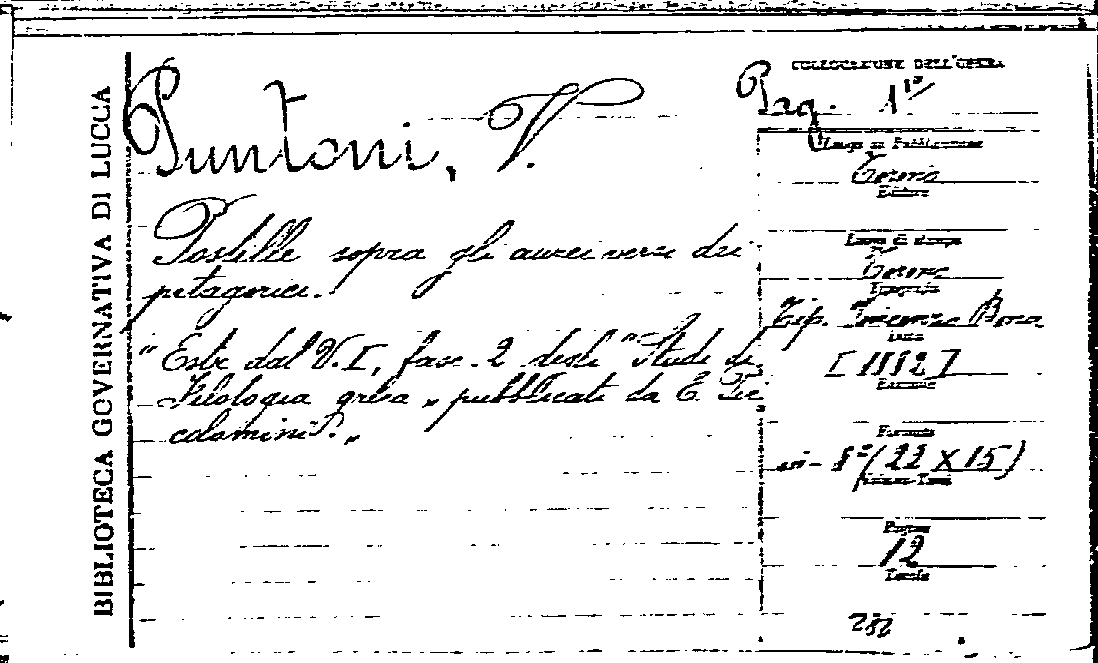 BIBLIOTECA GOVERNATIVA DI LUCCA
Puntoni, V.
Postille sopra gli aurei versi dei
pitagorici.
"Estr. dal V. I, fasc. 2 degli "Studi di
Filologia greca" pubblicati da E. Pic
colomini".
COLLOCAZIONE DELL'OPERA
Luogo di Pubblicazione
Torino
Editore
Luogo di stampa
Torino
Tipografia
Tip. Vincenzo Bona
Data
Formato
in-8º (22 X 15)
Pagine
12
Tavole